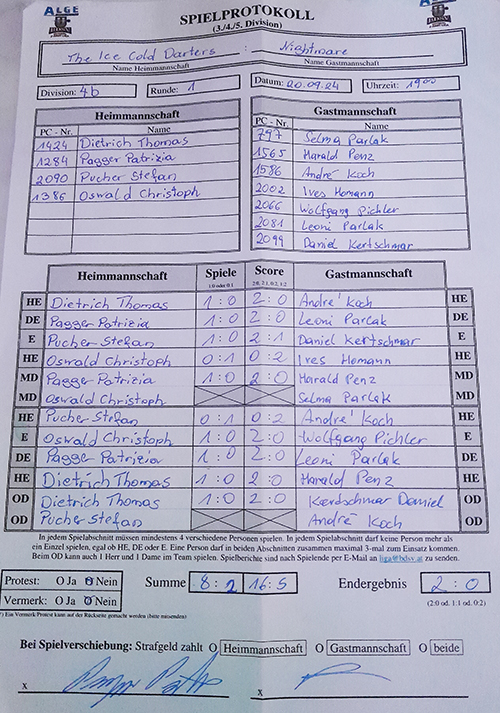 ALGE
SPIELPROTOKOLL
(3./4./5. Division)
The Ice Cold Darters : Nightmare
Name Heimmannschaft Name Gastmannschaft
Division: 4b Runde: 1 Datum: 20.09.24 Uhrzeit: 19 00
Heimmannschaft Gastmannschaft
PC - Nr. Name PC - Nr. Name
1424 Dietrich Thomas 797 Selma Parlak
1284 Pagger Patrizia 1565 Harald Penz
2090 Pucher Stefan 1586 André Koch
1386 Oswald Christoph 2002 Ives Homann
2066 Wolfgang Pichler
2081 Leoni Parlak
2099 Daniel Kertschmar
Heimmannschaft Spiele Score Gastmannschaft
1:0 oder 0:1 2:0, 2:1, 0:2, 1:2
HE Dietrich Thomas 1:0 2:0 André Koch HE
DE Pagger Patrizia 1:0 2:0 Leoni Parlak DE
E Pucher Stefan 1:0 2:1 Daniel Kertschmar E
HE Oswald Christoph 0:1 0:2 Ives Homann HE
MD Pagger Patrizia 1:0 2:0 Harald Penz MD
MD Oswald Christoph Selma Parlak MD
HE Pucher Stefan 0:1 0:2 André Koch HE
E Oswald Christoph 1:0 2:0 Wolfgang Pichler E
DE Pagger Patrizia 1:0 2:0 Leoni Parlak DE
HE Dietrich Thomas 1:0 2:0 Harald Penz HE
OD Dietrich Thomas 1:0 2:0 Kerdschmar Daniel OD
OD Pucher Stefan André Koch OD
In jedem Spielabschnitt müssen mindestens 4 verschiedene Personen spielen. In jedem Spielabschnitt darf keine Person mehr als
ein Einzel spielen, egal ob HE, DE oder E. Eine Person darf in beiden Abschnitten zusammen maximal 3-mal zum Einsatz kommen.
Beim OD kann auch 1 Herr und 1 Dame im Team spielen. Spielberichte sind nach Spielende per E-Mail an liga@bdsv.at zu senden.
Protest: O Ja O Nein Summe 8:2 16:5 Endergebnis 2:0
Vermerk: O Ja O Nein (2:0 od. 1:1 od. 0:2)
*) Ein Vermerk Protest kann auf der Rückseite gemacht werden (bitte ausenden)
Bei Spielverschiebung: Strafgeld zahlt O Heimmannschaft O Gastmannschaft O beide
x x